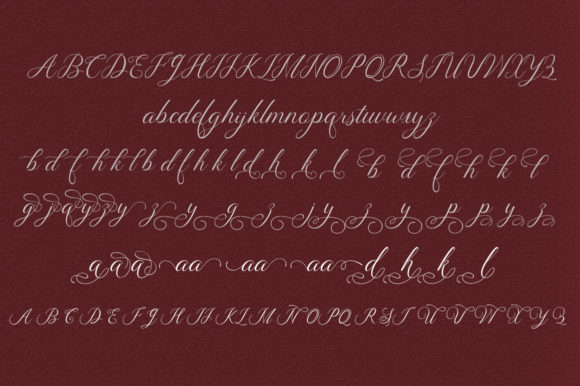 ABCDEFGHIJKLMNOPQRSTUVWXYZ
abcdefghijklmnopqrstuvwxyz
b d f h k l b d f h k l d h k l b d f h k l
g j p q y z y
a a a aa aa aa d h k l
A B C D E F G H I J K L M N O P Q R S T U V W X Y Z